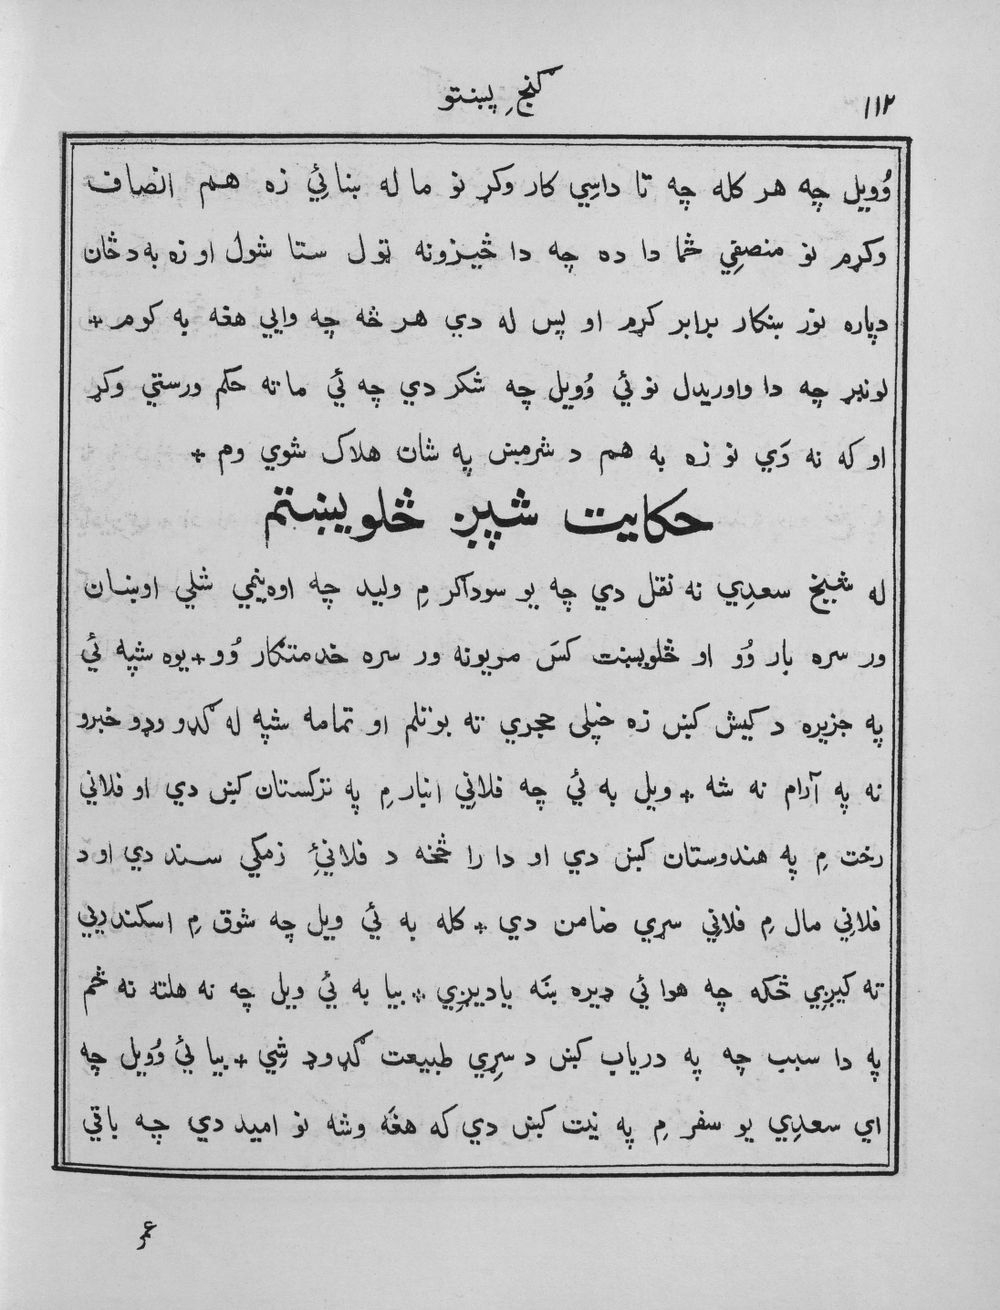 ۱۱۲
ګنجِ پښتو
وُویل چه هر کله چه تا داسِي کار وکړ نو ما له ښائِي زه هم انصاف
وکړم نو منصفِي څما دا ده چه دا څیزونه ټول ستا شول او زه به د ځان
دپاره نور ښکار برابر کړم او پس له دي هر څه چه وایي هغه به کوم +
لونبړ چه دا واوریدل نو ئي وُویل چه شکر دي چه ئي ما ته حکم ورستي وکړ
او که نه وَي نو زه به هم د شرمښ په شان هلاک شوي وم +
حکایت شپږ څلویښتم
له شیخ سعدِي نه نقل دي چه یو سوداګر مِ ولید چه اوه نیمي شلي اوښان
ور سره بار وُو او څلویښت کسَ مریونه ور سره خدمتګار وُو + یوه شپه ئي
په جزیره د کیش کښ زه خپلی حجري ته بوتلم او تمامه شپه له ګډو وډو خبرو
نه په آرام نه شه + ویل به ئي چه فلانِي انبار مِ په ترکستان کښ دي او فلاني
رخت مِ په هندوستان کښ دي او دا را څخه د فلانئِ زمکي سند دي او د
فلانِي مال مِ فلانِي سړي ضامن دي + کله به ئي ویل چه شوق مِ اسکندریي
ته کیږِي ځکه چه هوا ئي ډیره ښَه یادیږِي + بیا به ئي ویل چه نه هلته نه ځم
په دا سبب چه په دریاب کښ د سړِي طبیعت ګډ وډ شِي + بیا ئي وُویل چه
اي سعدِي یو سفر مِ په نیت کښ دي که هغَه وشه نو امید دي چه باقي
عمر